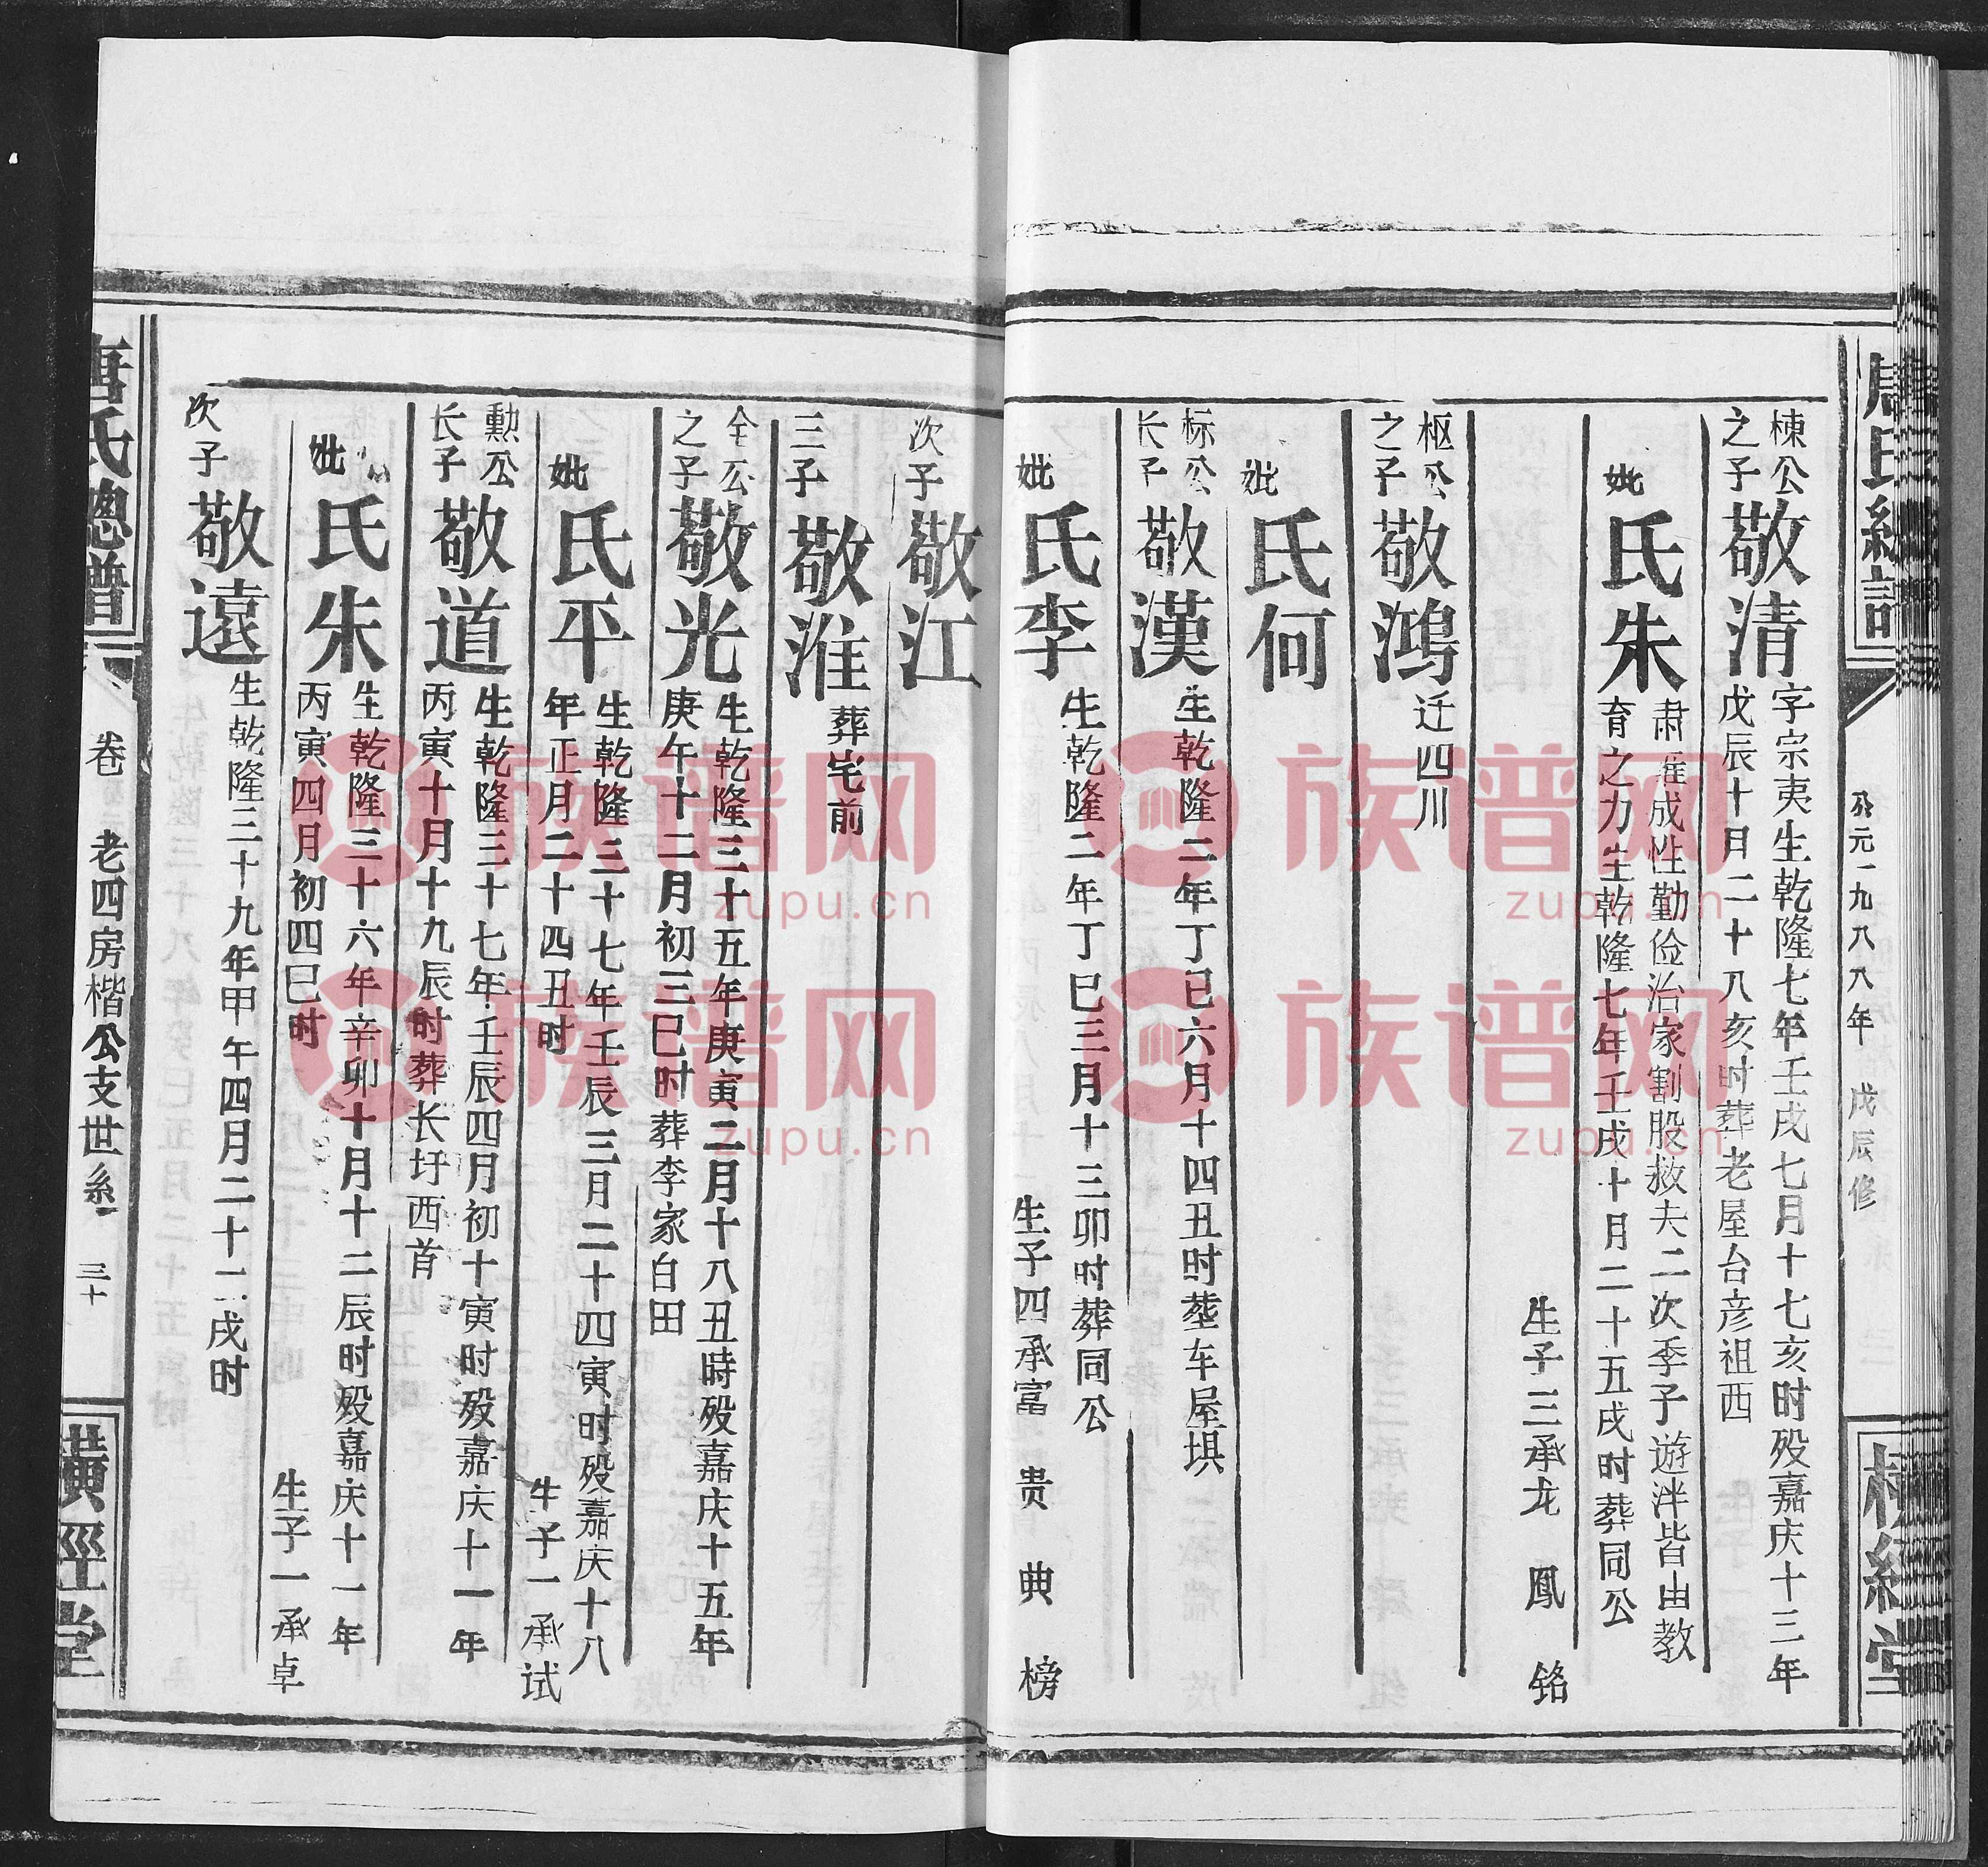 公元一九八八年 戊辰修
棟公之子 敬清 字宗夷生乾隆七年壬戌七月十七亥时殁嘉庆十三年
戊辰十月二十八亥时葬老屋台彦祖西
妣 氏朱 肃雍成性勤俭治家割股救夫二次季子遊泮皆由教
育之力生乾隆七年壬戌十月二十五戌时葬同公
生子三承龙 鳳 铭
枢公之子 敬鸿 迁四川
妣 氏何
标公长子 敬漢 生乾隆二年丁巳六月十四丑时塟车屋垻
妣 氏李 生乾隆二年丁巳三月十三卯时葬同公
生子四承富 贵 典 榜
次子 敬江
三子 敬淮 葬宅前
全公之子 敬光 生乾隆三十五年庚寅二月十八丑時殁嘉庆十五年
庚午十二月初三巳时葬李家白田
妣 氏平 生乾隆三十七年壬辰三月二十四寅时殁嘉庆十八
年正月二十四丑时
生子一承试
勳公长子 敬道 生乾隆三十七年壬辰四月初十寅时殁嘉庆十一年
丙寅十月十九辰时葬长圩西首
妣 氏朱 生乾隆三十六年辛卯十月十二辰时殁嘉庆十一年
丙寅四月初四巳时
生子一承卓
次子 敬遠 生乾隆三十九年甲午四月二十二戌时
氏總譜
卷 老四房楷公支世系 三十
橫經堂
族谱网
zupu.cn
族谱网
zupu.cn
族谱网
zupu.cn
族谱网
zupu.cn